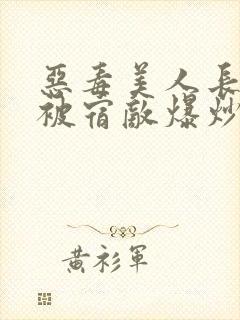 惡毒美人長
被宿敵爆炒
黃衫軍